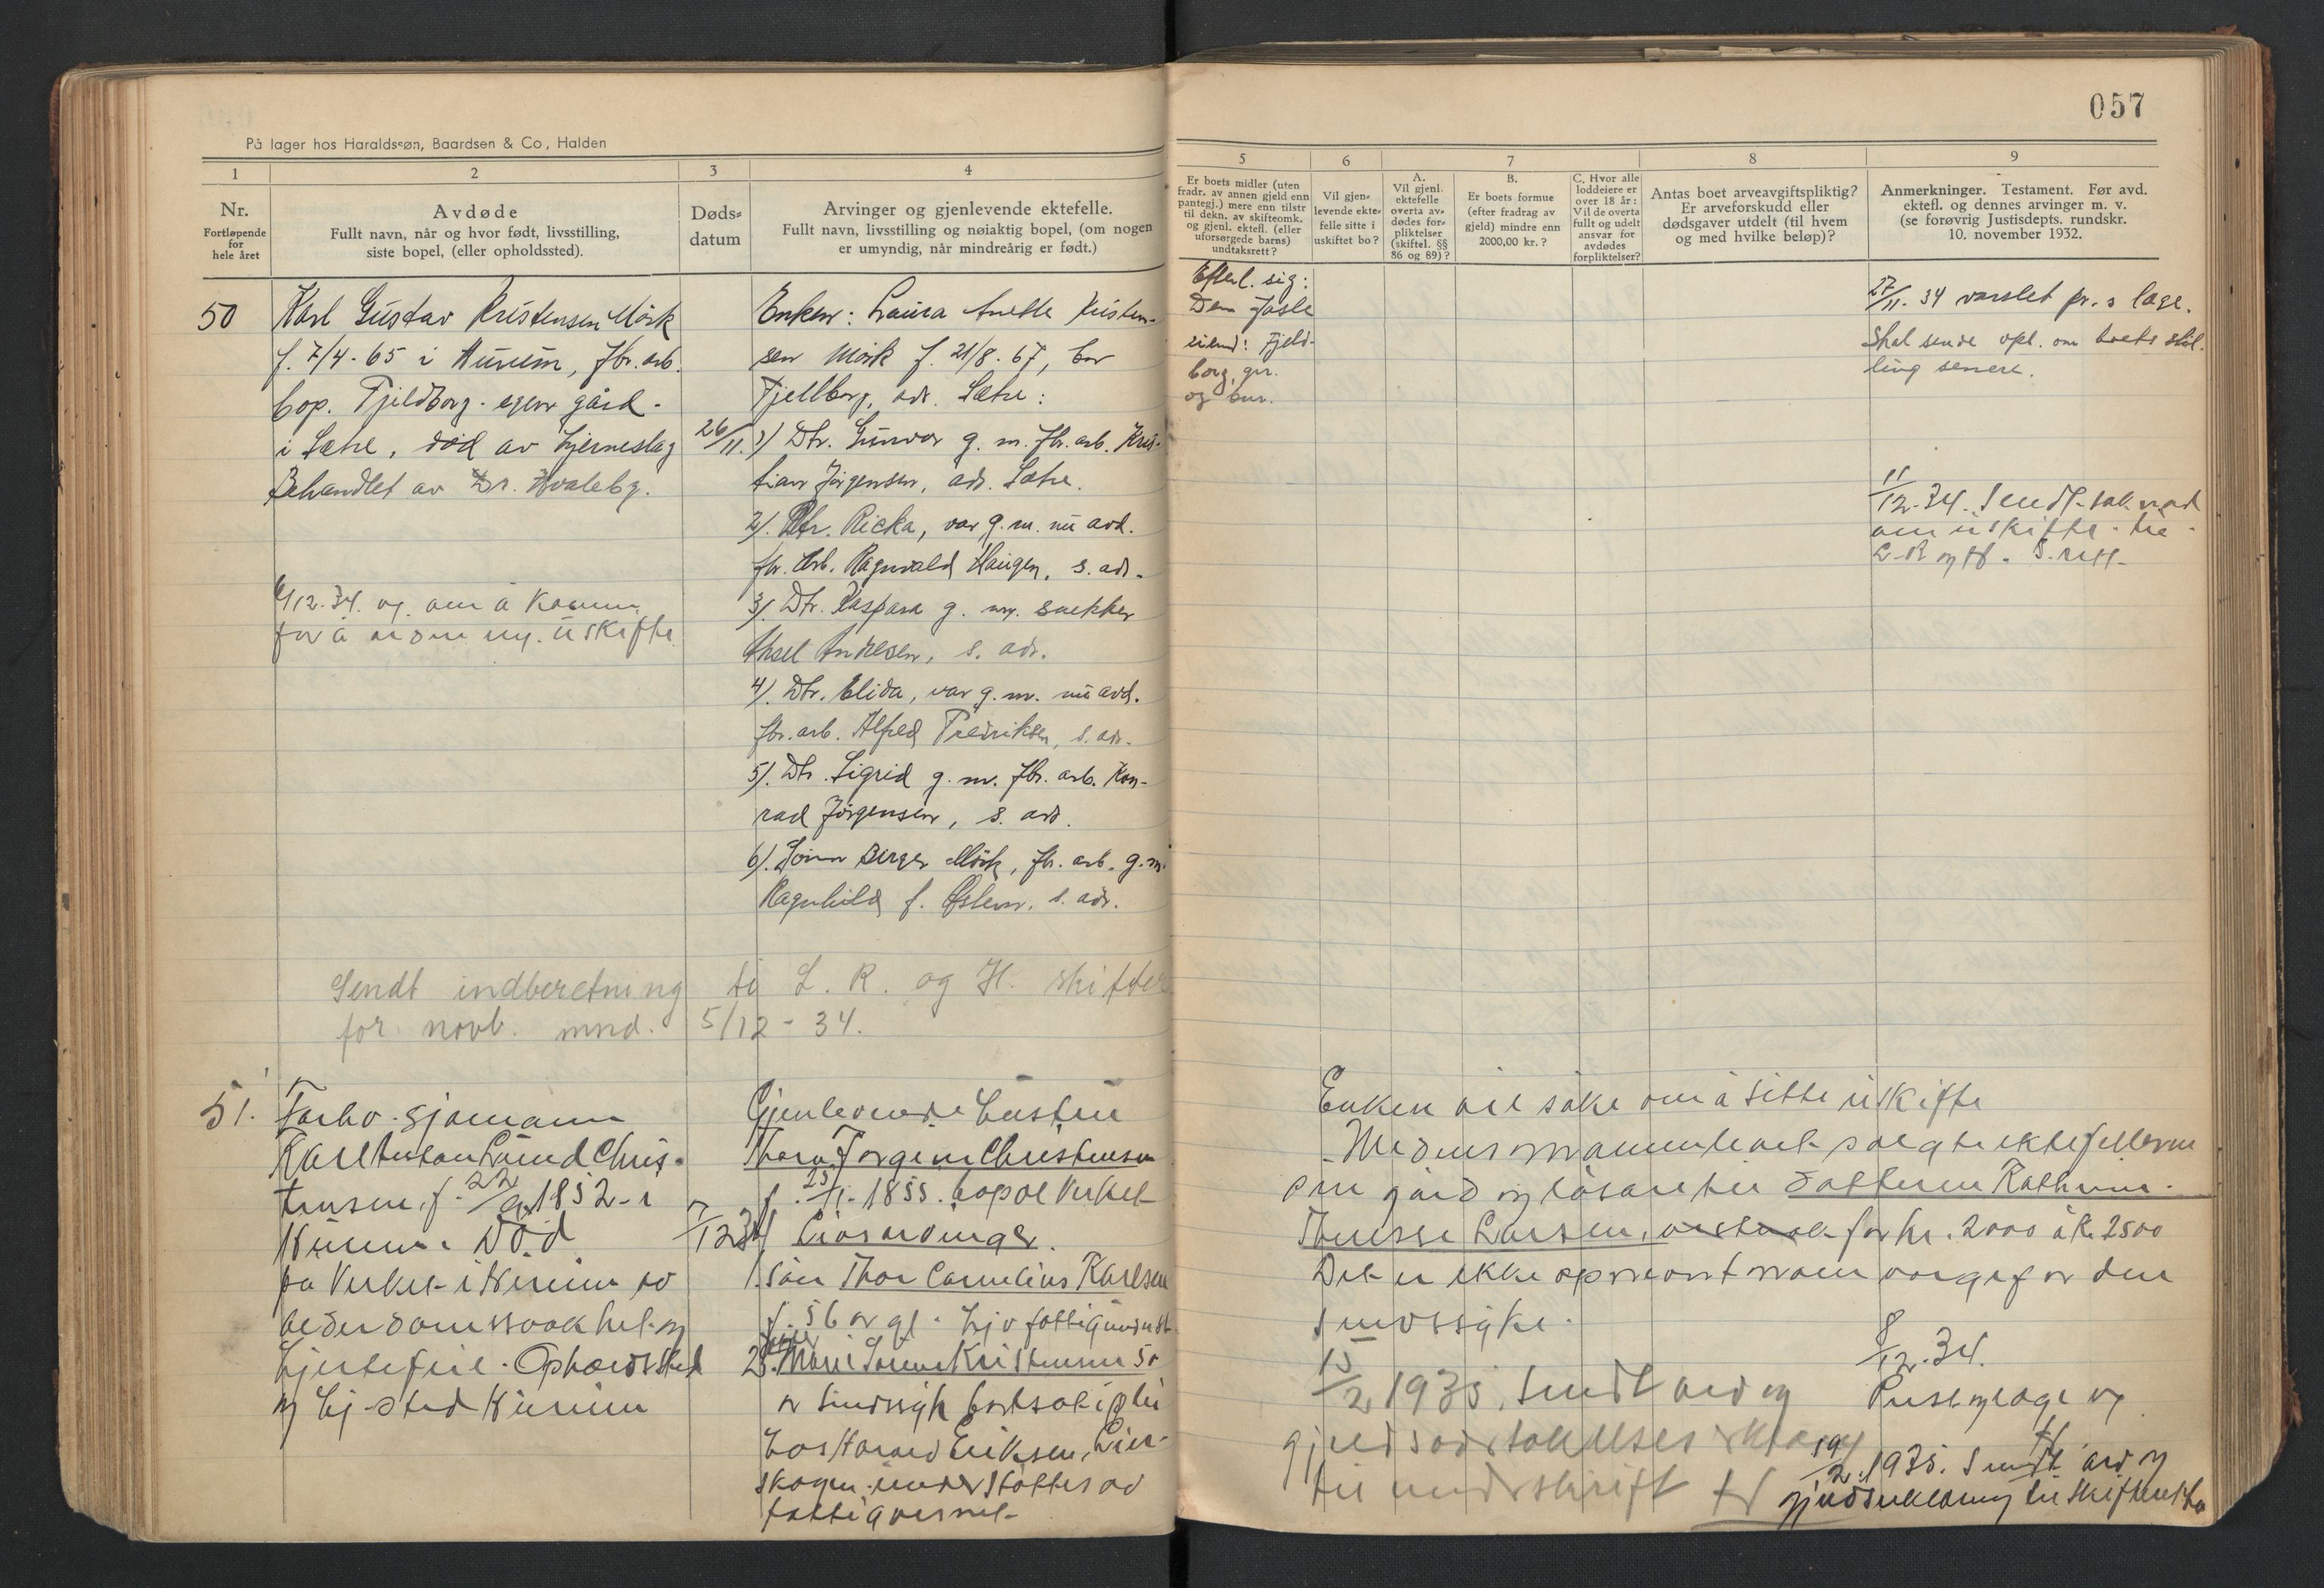 057
På lager hos Haraldssøn, Baardsen & Co, Halden
1
2
3
4
5
6
7
8
9
Nr.
Fortløpende
for
hele året
Avdøde
Fullt navn, når og hvor født, livsstilling,
siste bopel, (eller opholdssted).
Døds-
datum
Arvinger og gjenlevende ektefelle.
Fullt navn, livsstilling og nøiaktig bopel, (om nogen
er umyndig, når mindreårig er født.)
Er boets midler (uten
fradr. av annen gjeld enn
pantegj.) mere enn tilstr
til dekn. av skifteomk.
og gjenl. ektefl. (eller
uforsørgede barns)
undtaksrett?
Vil gjen-
levende ekte-
felle sitte i
uskiftet bo?
A.
Vil gjenl.
ektefelle
overta av-
dødes for-
pliktelser
(skiftel. §§
86 og 89)?
B.
Er boets formue
(efter fradrag av
gjeld) mindre enn
2000,00 kr.?
C. Hvor alle
loddeiere er
over 18 år:
Vil de overta
fullt og udelt
ansvar for
avdødes
forpliktelser?
Antas boet arveavgiftspliktig?
Er arveforskudd eller
dødsgaver utdelt (til hvem
og med hvilke beløp)?
Anmerkninger. Testament. Før avd.
ektefl. og dennes arvinger m. v.
(se forøvrig Justisdepts. rundskr.
10. november 1932.
50
Karl Gustav Kristensen Mörk
f. 7/4-65 i Hurum, fbr. arb.
bop. Fjeldborg - egen gård -
i Sætre, död av hjerneslag
Behandlet av Dr. Hvalebg.
26/11.
6/12-34. og. om å komme
for å ordne ny. uskifte
Enken: Laura Anette Kristen-
sen Mörk f. 21/8-67, bor
Fjellborg, adr. Sætre:
1) Dtr. Gunvor g. m. fbr. arb. Kris-
tian Jörgensen, adr. Sætre.
2). Dtr. Ricka, var g. m. nu avd.
fbr. arb. Ragnvald Haugen, s. adr.
3). Dtr. Kaspara g. m. snekker
Aksel Andresen, s. adr.
4). Dtr. Elida, var g. m. nu avd.
fbr. arb. Alfred Fredriksen, s. adr.
5). Dtr. Sigrid g. m. fbr. arb. Kon-
rad Jörgensen, s. adr.
6). Sönn Berger Mörk, fbr. arb. g. m.
Ragnhild f. Östern. s. adr.
Efterl. sig:
Den faste
eiend: Fjeld-
borg, gnr.
og bnr.
27/11. 34 varslet pr. s læge.
Skal sende opl. om boets stil-
ling senere.
11/12-34. Sendt søknad
om uskifte til
L. R. og H. S. rett-
Sendt indberetning til L. R. og H. skifter
for novb. mnd. 5/12-34.
51.
Forhv. sjømann
Karl Anton Lund Chris-
tensen, f. 22/9 1852 i
Hurum. Död
på Verket i Hurum av
alderdomssvakhet og
hjertefeil. Opholdssted
og hj.sted Hurum
7/12 34
Gjenlevende hustru
Thora Jorgine Christensen
f. 25/1-1855. bopæl Verket
Livsarvinger.
1. Sön Thor Cornelius Karlsen
f. 56 år gl. hj. v fattigunderst.
2. Marie Lovise Kristensen 50
år sindssyk bortsatt til
hos Harald Eriksen, Lier-
skogen understöttes av
fattigvesnet-
Enken vil söke om å sitte uskifte
Medens mannen levet solgte ektefellerne
sin gård og lösøre til datteren Kathrine
Therese Larsen, for kr. 2000 à kr 2500
Det er ikke opnevnt noen verge for den
sindssyke.
8/12-34.
15/2 1935. Sendt arv og
gjeldsovertakelses erklæring
til underskrift
19/2 1935. Sendt arv og
gjeldserklæring til skifteretten